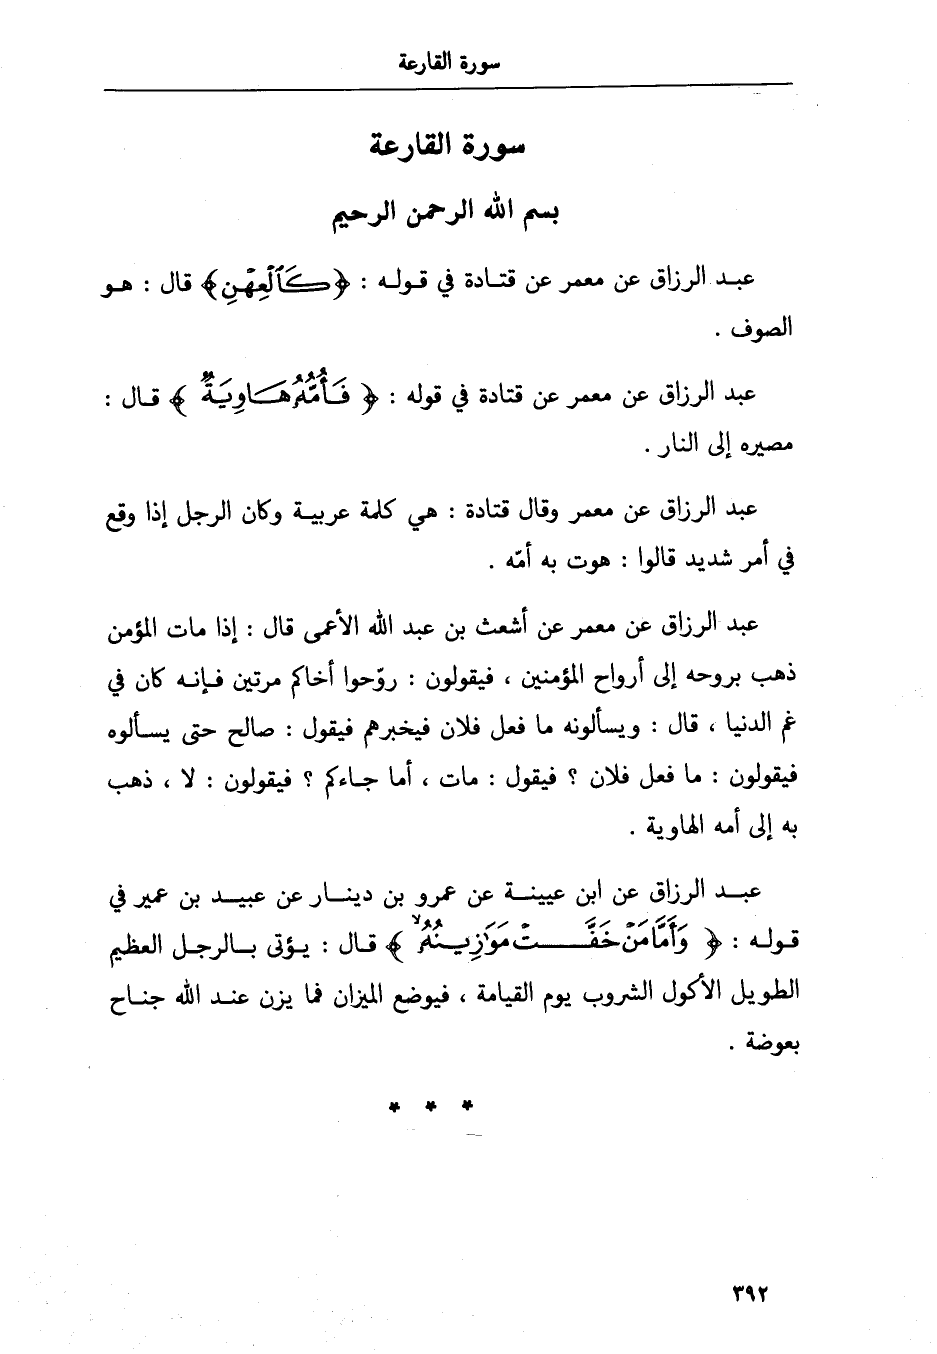 سورة القارعة
سورة القارعة
بسم الله الرحمن الرحيم
عبد الرزاق عن معمر عن قتادة في قوله : ﴿كَٱلۡعِهۡنِ﴾ قال : هو
الصوف .
عبد الرزاق عن معمر عن قتادة في قوله : ﴿ فَأُمُّهُۥ هَاوِيَةٌ ﴾ قال :
مصيره إلى النار .
عبد الرزاق عن معمر وقال قتادة : هي كلمة عربية وكان الرجل إذا وقع
في أمر شديد قالوا : هوت به أمّه .
عبد الرزاق عن معمر عن أشعث بن عبد الله الأعمى قال : إذا مات المؤمن
ذهب بروحه إلى أرواح المؤمنين ، فيقولون : روّحوا أخاكم مرتين فإنه كان في
غم الدنيا ، قال : ويسألونه ما فعل فلان فيخبرهم فيقول : صالح حتى يسألوه
فيقولون : ما فعل فلان ؟ فيقول : مات ، أما جاءكم ؟ فيقولون : لا ، ذهب
به إلى أمه الهاوية .
عبد الرزاق عن ابن عيينة عن عمرو بن دينار عن عبيد بن عمير في
قوله : ﴿ وَأَمَّا مَنۡ خَفَّتۡ مَوَٰزِينُهُۥ ﴾ قال : يؤتى بالرجل العظيم
الطويل الأكول الشروب يوم القيامة ، فيوضع الميزان فما يزن عند الله جناح
بعوضة .
* * *
٣٩٢